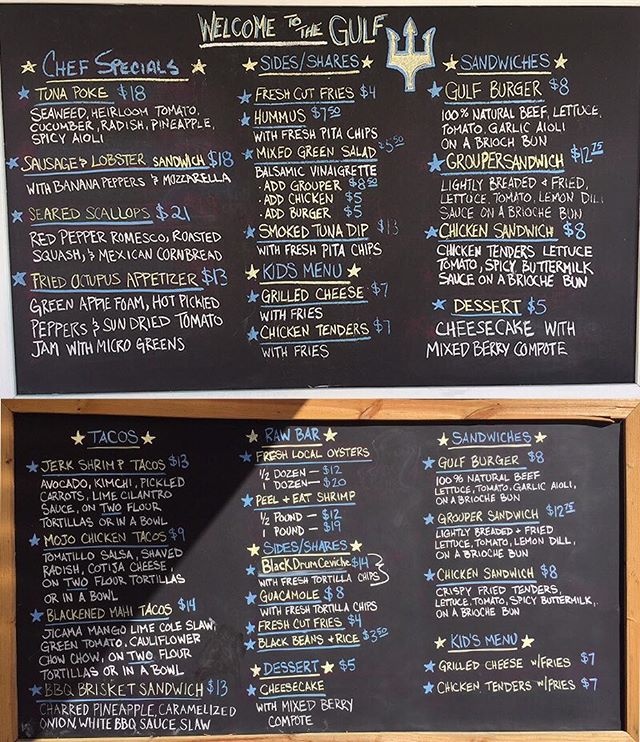 WELCOME TO THE GULF
CHEF SPECIALS
TUNA POKE $18
SEAWEED, HEIRLOOM TOMATO,
CUCUMBER, RADISH, PINEAPPLE,
SPICY AIOLI
SAUSAGE & LOBSTER SANDWICH $18
WITH BANANA PEPPERS & MOZZARELLA
SEARED SCALLOPS $21
RED PEPPER ROMESCO, ROASTED
SQUASH, & MEXICAN CORNBREAD
FRIED OCTUPUS APPETIZER $13
GREEN APPLE FOAM, HOT PICKED
PEPPERS & SUN DRIED TOMATO
JAM WITH MICRO GREENS
SIDES/SHARES
FRESH CUT FRIES $4
HUMMUS $7.50
WITH FRESH PITA CHIPS
MIXED GREEN SALAD $5.50
BALSAMIC VINAIGRETTE
· ADD GROUPER $8.50
· ADD CHICKEN $5
· ADD BURGER $5
SMOKED TUNA DIP $13
WITH FRESH PITA CHIPS
KIDS MENU
GRILLED CHEESE $7
WITH FRIES
CHICKEN TENDERS $7
WITH FRIES
SANDWICHES
GULF BURGER $8
100% NATURAL BEEF, LETTUCE,
TOMATO, GARLIC AIOLI
ON A BRIOCH BUN
GROUPER SANDWICH $12.75
LIGHTLY BREADED & FRIED,
LETTUCE, TOMATO, LEMON DILL
SAUCE ON A BRIOCHE BUN
CHICKEN SANDWICH $8
CHICKEN TENDERS LETTUCE
TOMATO, SPICY BUTTERMILK
SAUCE ON A BRIOCHE BUN
DESSERT $5
CHEESECAKE WITH
MIXED BERRY COMPOTE
TACOS
JERK SHRIMP TACOS $13
AVOCADO, KIMCHI, PICKLED
CARROTS, LIME CILANTRO
SAUCE, ON TWO FLOUR
TORTILLAS OR IN A BOWL
MOJO CHICKEN TACOS $9
TOMATILLO SALSA, SHAVED
RADISH, COTIJA CHEESE,
ON TWO FLOUR TORTILLAS
OR IN A BOWL
BLACKENED MAHI TACOS $14
JICAMA MANGO LIME COLE SLAW,
GREEN TOMATO, CAULIFLOWER
CHOW CHOW, ON TWO FLOUR
TORTILLAS OR IN A BOWL
BBQ BRISKET SANDWICH $13
CHARRED PINEAPPLE, CARAMELIZED
ONION, WHITE BBQ SAUCE, SLAW
RAW BAR
FRESH LOCAL OYSTERS
1/2 DOZEN — $12
1 DOZEN — $20
PEEL + EAT SHRIMP
1/2 POUND — $12
1 POUND — $19
SIDES/SHARES
BLACK DRUM CEVICHE $14
WITH FRESH TORTILLA CHIPS
GUACAMOLE $8
WITH FRESH TORTILLA CHIPS
FRESH CUT FRIES $4
BLACK BEANS + RICE $3.50
DESSERT $5
CHEESECAKE
WITH MIXED BERRY
COMPOTE
SANDWICHES
GULF BURGER $8
100% NATURAL BEEF
LETTUCE, TOMATO, GARLIC AIOLI,
ON A BRIOCHE BUN
GROUPER SANDWICH $12.75
LIGHTLY BREADED + FRIED
LETTUCE, TOMATO, LEMON DILL,
ON A BRIOCHE BUN
CHICKEN SANDWICH $8
CRISPY FRIED TENDERS,
LETTUCE, TOMATO, SPICY BUTTERMILK,
ON A BRIOCHE BUN
KID'S MENU
GRILLED CHEESE W/FRIES $7
CHICKEN TENDERS W/FRIES $7